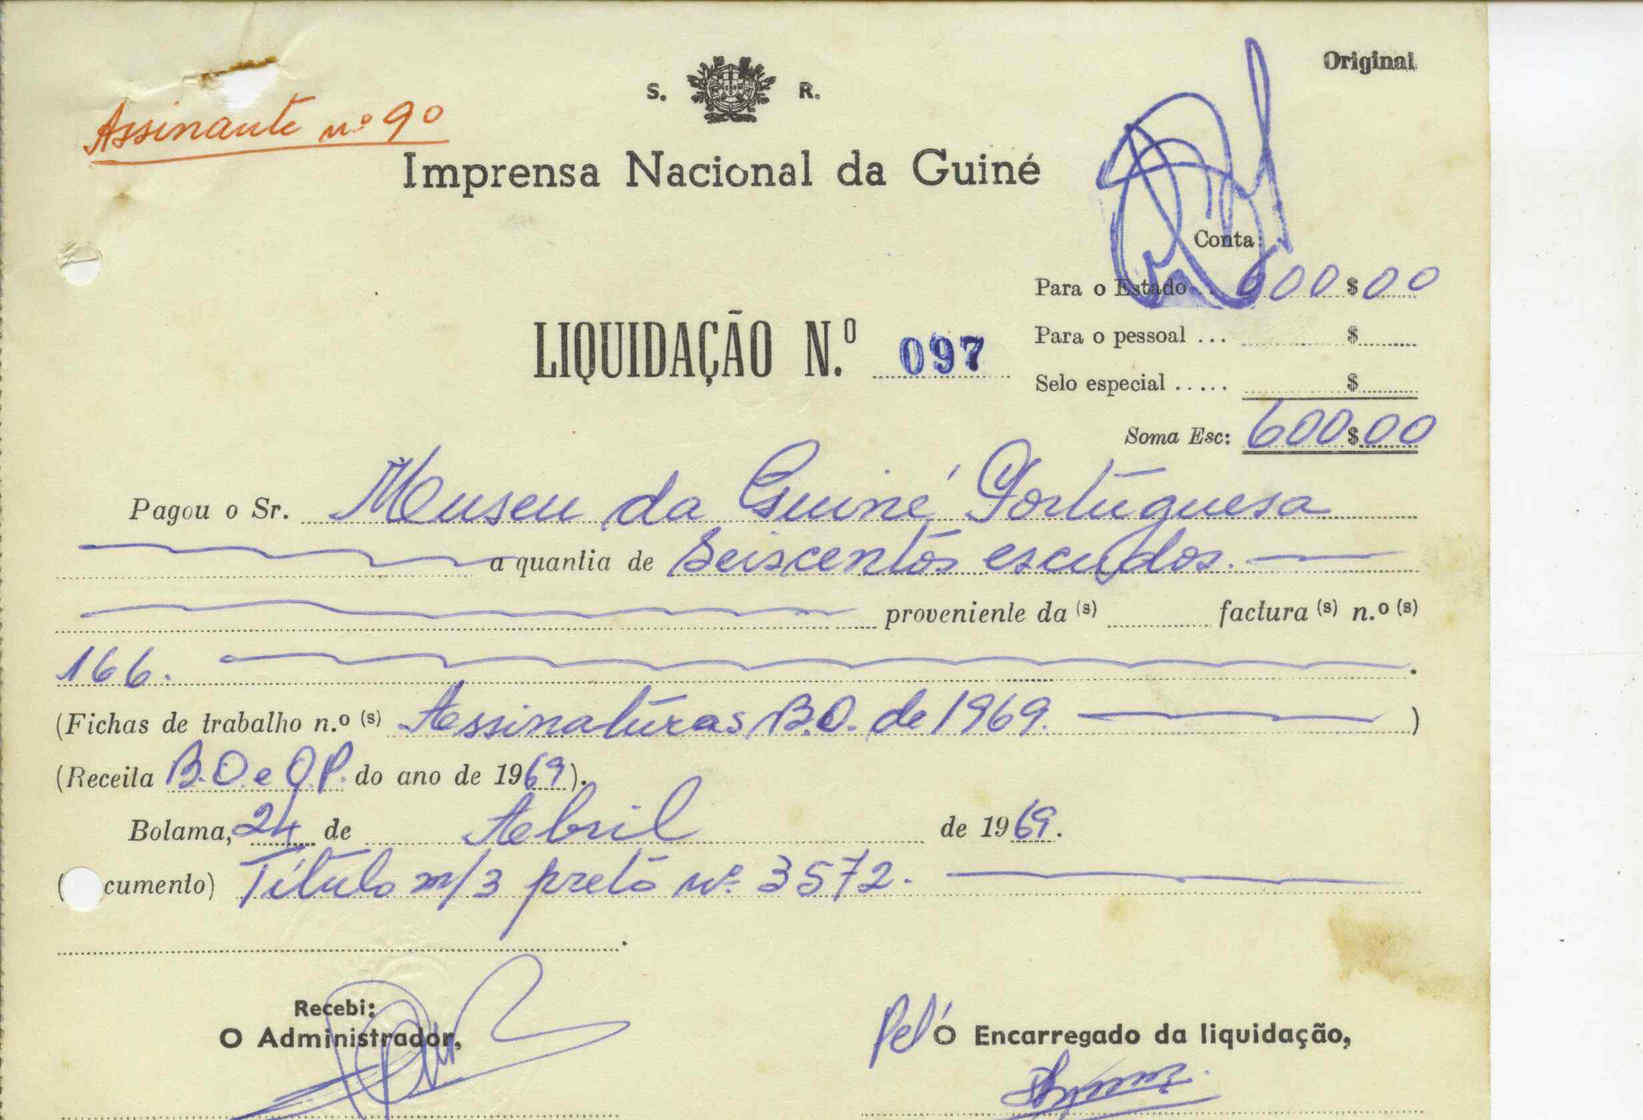 Original
Assinante nº 90
S. R.
Imprensa Nacional da Guiné
Conta:
Para o Estado .. 600$00
LIQUIDAÇÃO N.º 097
Para o pessoal ... $
Selo especial ..... $
Soma Esc: 600$00
Pagou o Sr. Museu da Guiné Portuguesa
a quantia de Seiscentos escudos.
proveniente da (s) factura (s) n.º (s)
166.
(Fichas de trabalho n.º (s) Assinaturas B.O. de 1969. )
(Receita B.O. e O.P. do ano de 1969).
Bolama, 24 de Abril de 1969.
( cumento) Título m/3 preto nº 3572.
Recebi:
O Administrador,
Pel' O Encarregado da liquidação,